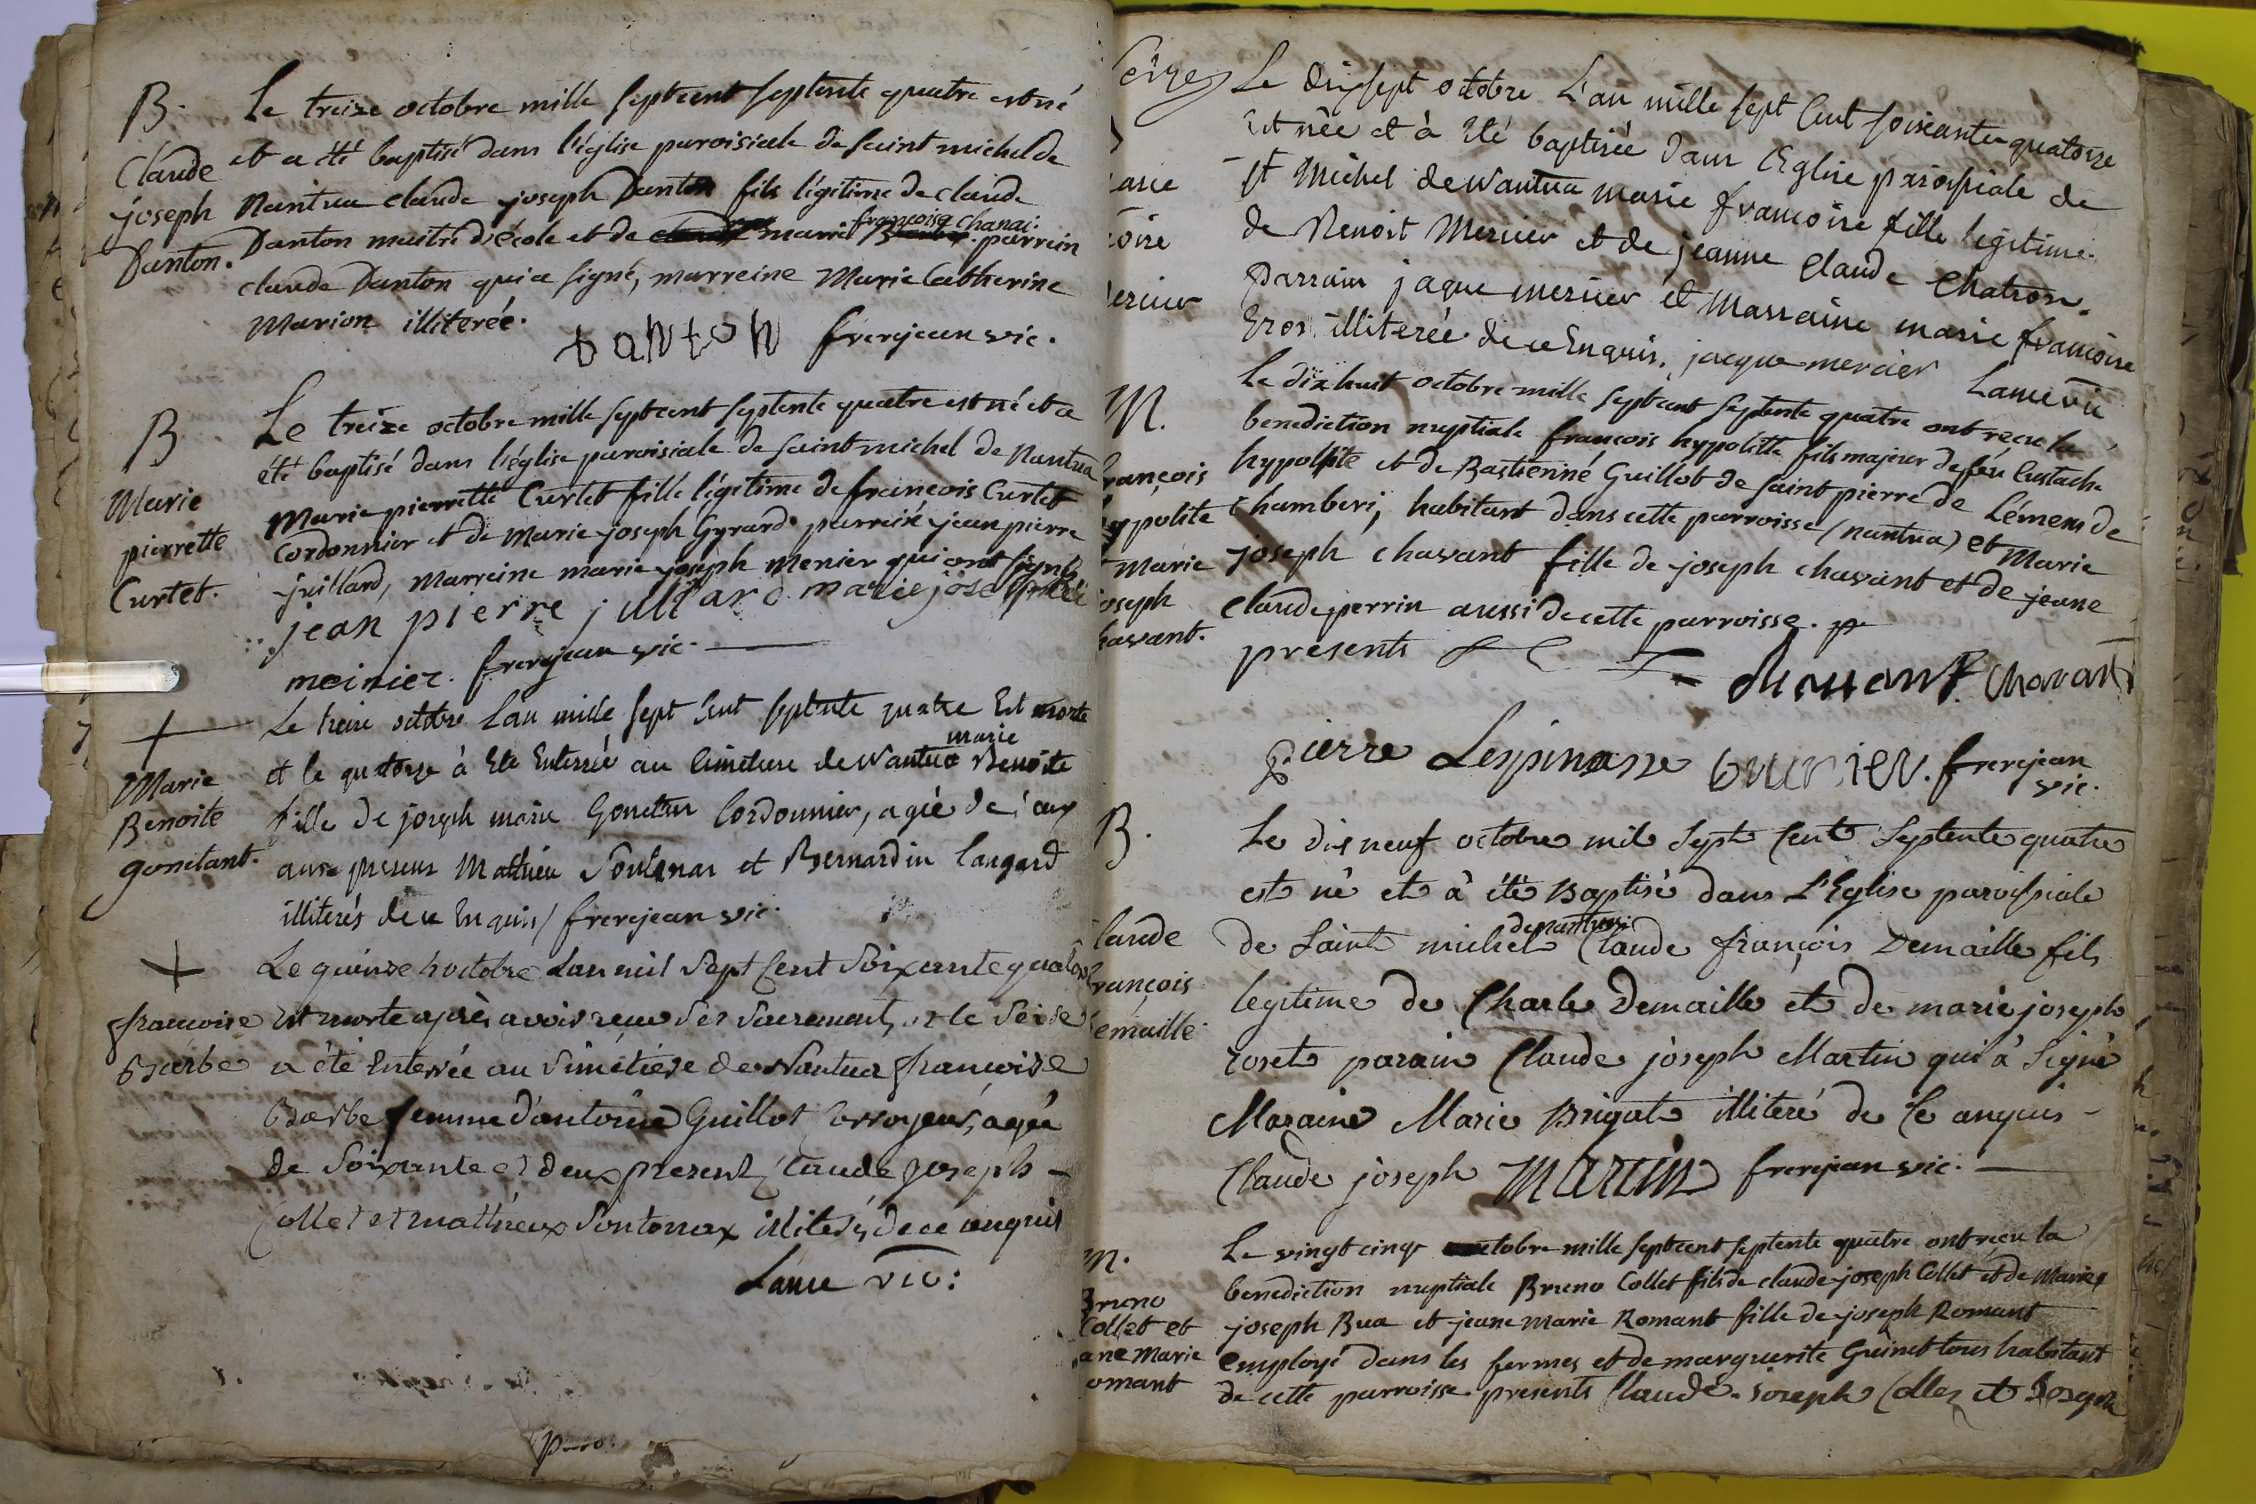 B.
Claude
joseph
Danton.
Le treize octobre mille septcent septente quatre est né
et a été baptisé dans l'église paroisiale de saint michel de
Nantua claude joseph Danton fils légitime de claude
Danton maitre d'école et de marie françoise chanai. parrein
claude Danton qui a signé, marreine Marie Catherine
Marion illiterée.
danton frerejean vic.
B
Marie
pierrette
Curtet.
Le treize octobre mille septcent septente quatre est né et a
été baptisé dans l'église paroisiale de saint michel de Nantua
Marie pierrette Curtet fille légitime de francois Curtet
Cordonnier et de Marie joseph Gyrard. parrein jean pierre
juillard, marreine marie joseph Menier qui ont signé
jean pierre jullard marie joseph
meinier. frerejean vic.
+
Marie
Benoite
gonitant.
Le treize octobre L'an mille sept Cent septente quatre Est morte
et le quatorze à Eté Enterrée au Cimetiere de Nantua marie Benoite
fille de joseph marie Cordonnier, agée de
ans presens Mathieu et Bernardin
illiterés de ce Enquis / frerejean vic.
+
francoise
Barbe
Le quinze octobre L'an mil Sept Cent Soixante quatorze
Est morte après avoir recue Ses Sacrements, et le Seize
a été Enterrée au Simétiere de Nantua francoise
Barbe femme d'antoine Guillot agée
de Soixante et deux present Claude joseph
Collet et mathieux Sontonax illiterés de ce enquis
Lance vic:
arie
oise
ercier
Le dixsept octobre L'an mille sept Cent soixante-quatorze
Est née et à Eté baptisée dans L'Eglise paroissiale de
St Michel de Nantua marie francoise fille legitime
de Benoit Mercier et de jeanne Claude Chatron.
Parrain jaque mercier et Marraine marie francoise
Eros illiterée de ce Enquis. jacque mercier Lance vic
M.
françois
hypolite
Marie
joseph
havant.
Le dix huit octobre mille septcent septente quatre ont recu la
benediction nuptiale francois hypolitte fils majeur de féu Eustache
hypolite et de Bastienne Guillot de saint pierre de Lémens de
Chamberi, habitant dans cette parroisse (nantua) et Marie
joseph chavant fille de joseph chavant et de jeane
Claude perrin aussi de cette parroisse.
presents
chavant Chavant
pierre Lespinasse frerejean
vic.
B.
laude
rançois
emaille
Le dis neuf octobre mil Sept Cent Septente quatre
est né et à été Baptisé dans L'Eglise paroissiale
de Saint michel denantua Claude françois Demaille fils
legitime de Charle Demaille et de marie joseph
roset parain Claude joseph Martin qui à Signé
Maraine Marie Brigat illiteré de Ce anquis
Claude joseph Martin frerejean vic.
M.
Bruno
Collet et
ane Marie
omant
Le vingt cinq octobre mille septcent septente quatre ont recu la
benediction nuptiale Bruno Collet fils de claude joseph Collet et de Marie
joseph Bua et jeane marie Romant fille de joseph Romant
employé dans les fermes et de marguerite Guinet tous habitant
de cette parroisse presents Claude joseph Collet et Joseph